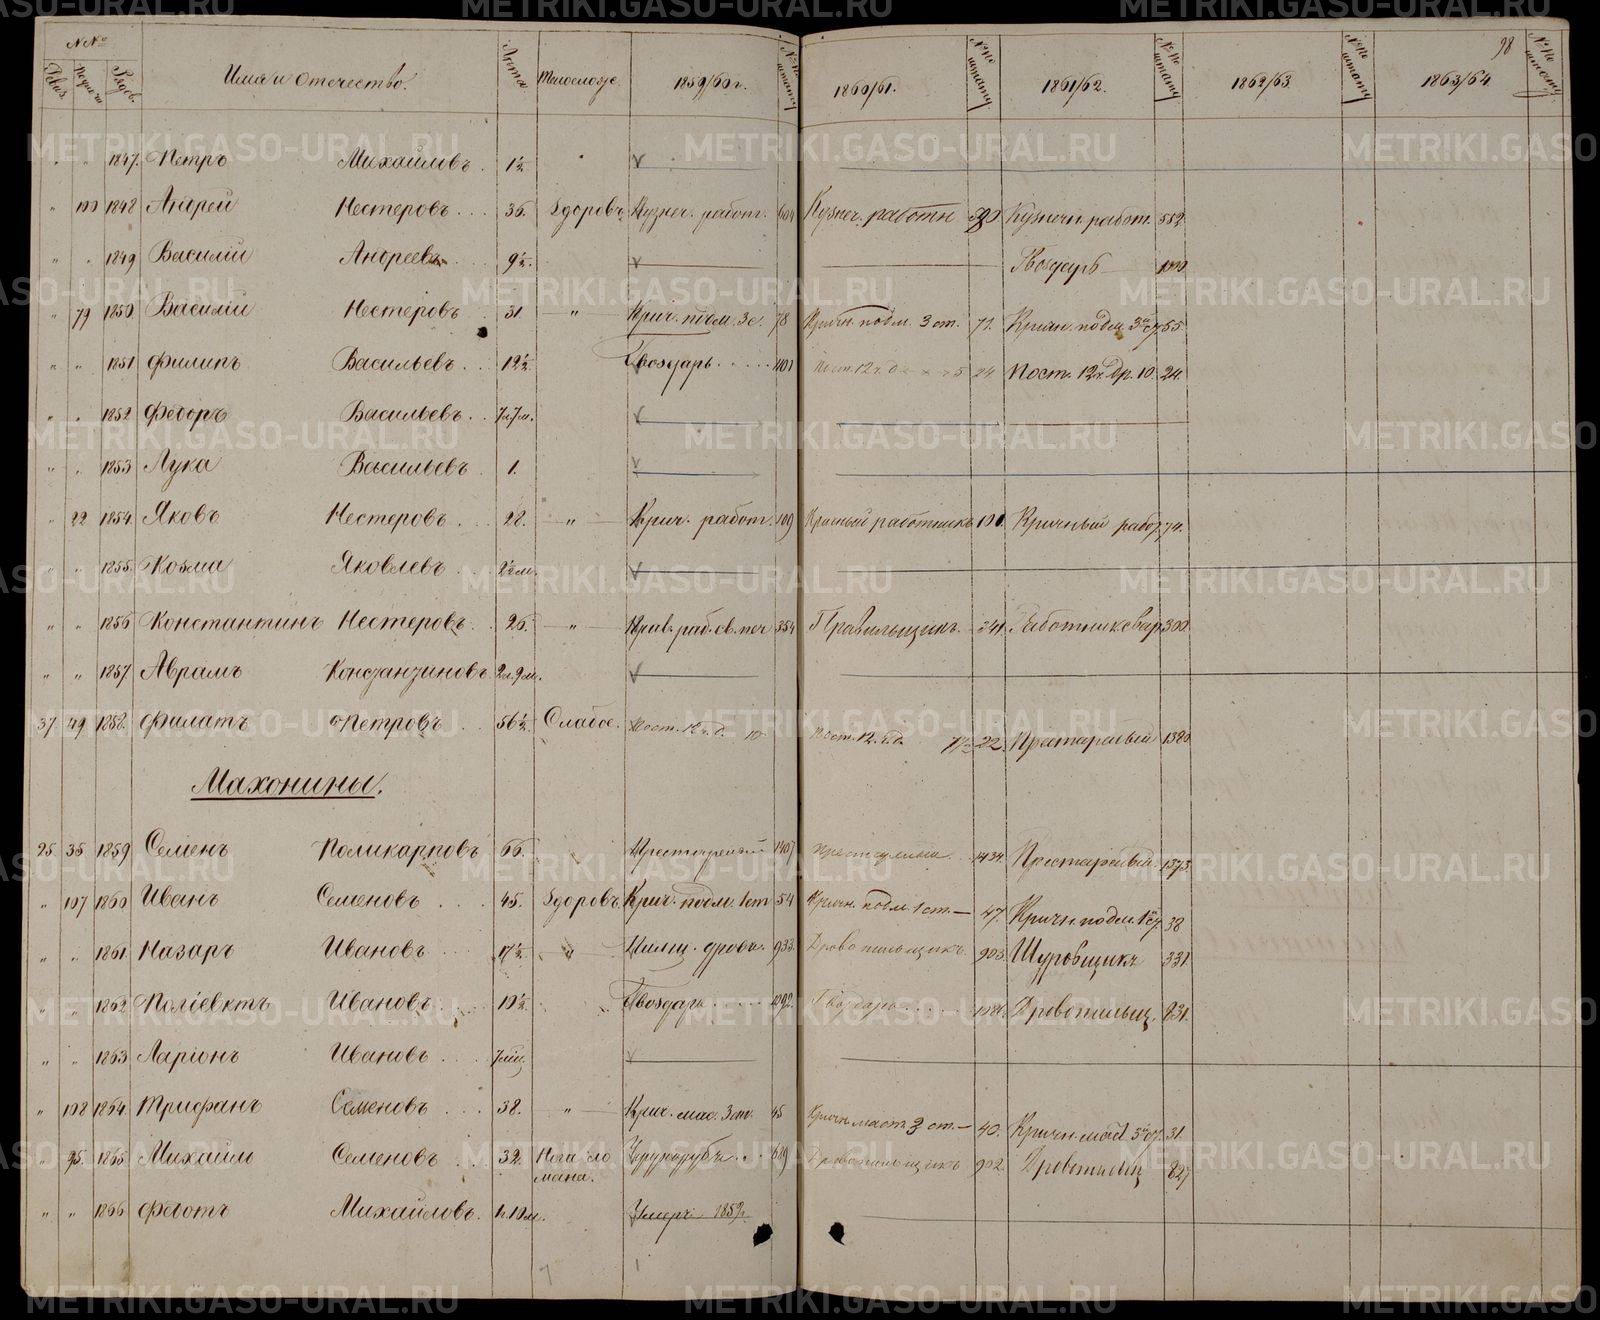 98
№№
Имя и отечество.
Лѣта
Телосложе.
1859/60 г.
1860/61.
1861/62.
1862/63.
1863/64.
" " 1847. Петръ Михайловъ. 1½
" 100 1848 Андрей Нестеровъ... 36. Здоровъ. Кузнеч. работ. 604 Кузнеч. работн Кузнечн. работ. 552
" " 1849 Василій Андреевъ 9½. Гвоздарь 1000
" 79 1850. Василій Нестеровъ. 31. " Крич. подм. 3 с. 78 Кричн. подм. 3 ст. 71. Кричн. подм. 3й ст 55.
" " 1851 Филипъ Васильевъ.. 12½. Гвоздарь..... Пост. 12 ч. д 24. Пост. 12 ч. Др. 10. 24.
" " 1852 Федоръ Васильевъ.. 7л.7м.
" " 1853 Лука Васильевъ. 1.
" 22 1854. Яковъ Нестеровъ... 28. " Крич. работ. 109 Кричный работникъ 101. Кричный рабо. 74.
" " 1855. Козма Яковлевъ 2½м.
" " 1856 Константинъ Нестеровъ. 26. " Прав. раб. св. печ 354 Правильщикъ. 341 Работник свар. 300
" " 1857. Аврамъ Константиновъ. 2л.9м.
37 49 1858. Филатъ Петровъ.. 56½. Слабое. Пост. 12 ч. д. 10 Пост. 12 ч. д. 22. Престарелый 1380
Махонины.
25 35 1859 Семенъ Поликарповъ 66. Престарелый 1407 Престарелый 1434. Престарелый. 1373
" 107 1860 Иванъ Семеновъ.... 45. Здоровъ. Крич. подм. 1 ст 54 Кричн. подм. 1 ст. — 47. Кричн. подм. 1й ст. 38
" " 1861. Назаръ Ивановъ... 17½. " Пилщ. дрова. 933. Дровопильщикъ. 903. Шуровщикъ 331.
" " 1862 Поліевктъ Ивановъ... 10½. Гвоздарь..... 1092. Гвоздарь Дровопильщ. 831.
" " 1863 Ларіонъ Ивановъ...
" 108 1864. Трифанъ Семеновъ... 38. " Крич. мас. 3 ст. 45 Кричн. маст. 3 ст. — 40. Кричн. маст 3й ст. 31.
" 95. 1865 Михайло Семеновъ.. 32. Нога сло
мана. Дровопильщикъ 902. Дровопильщ 827
" " 1866 Федотъ Михайловъ. 1л.10м. Умеръ 1859г.
METRIKI.GASO-URAL.RU